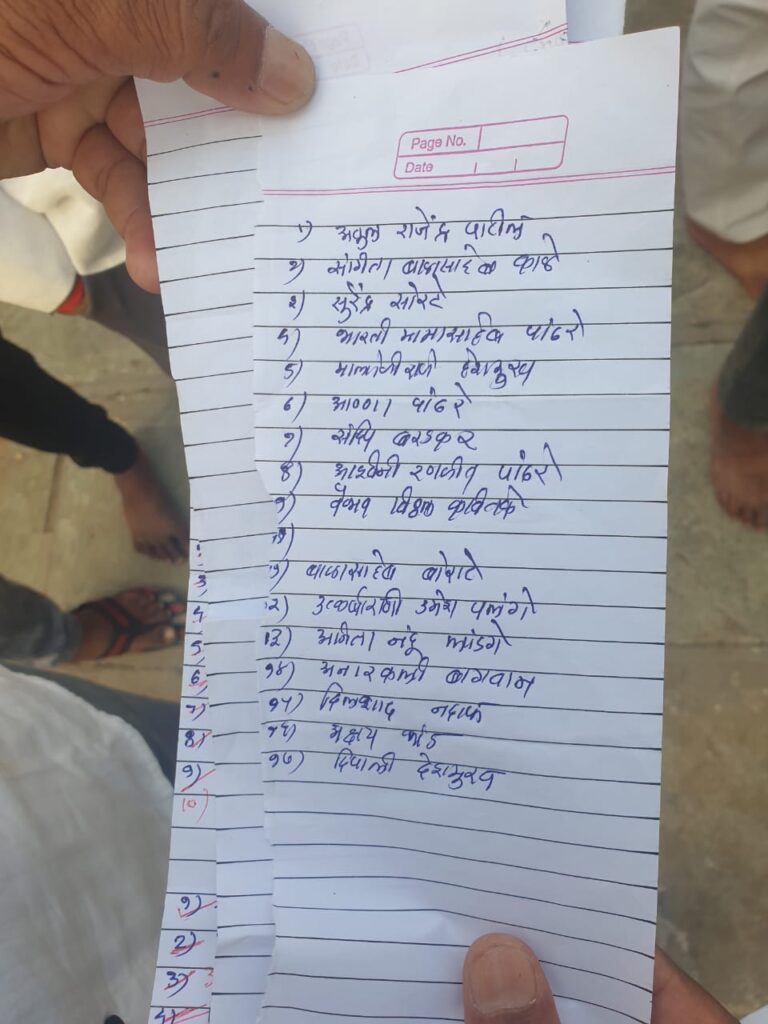 Page No.
Date
१) अतुल राजेंद्र पाटील
२) संगीता बाळासाहेब काळे
३) सुरेंद्र सोरटे
4) भारती मामासाहेब पांढरे
5) मालोजीराजे देशमुख
6) आण्णा पांढरे
७) बरडकर
8) आश्विनी रणजीत पांढरे
9) वैभव विठ्ठल कवितके
१०)
११) बाळासाहेब बोराटे
१२) उमेश पलंगे
१३) अनिता नंदू लांडगे
१४) अनारकली बागवान
१५) दिलशाद नदाफ
१६) अक्षय
१७) दिपाली देशमुख
3
4
5
6)
७)
8)
9)
10)
१)
2)
3)
4)